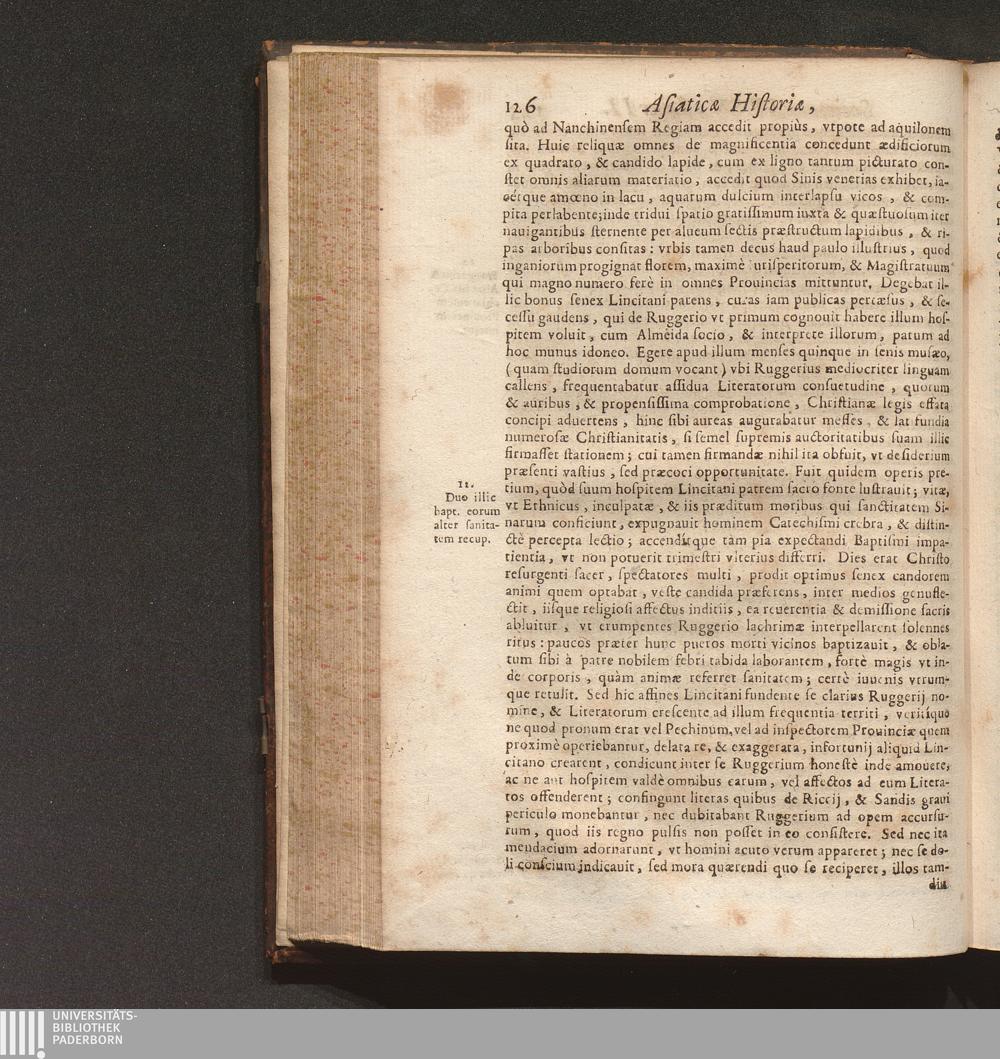 126 Aſiaticæ Hiſtoriæ,
quò ad Nanchinenſem Regiam accedit propiùs, vtpote ad aquilonem
ſita. Huic reliquæ omnes de magnificentia concedunt ædificiorum
ex quadrato, & candido lapide, cum ex ligno tantum picturato con-
ſtet omnis aliarum materiatio, accedit quod Sinis venetias exhibet, ia-
cétque amœno in lacu, aquarum dulcium interlapſu vicos, & com-
pita perlabente; inde tridui ſpatio gratiſſimum iuxta & quæſtuoſum iter
nauigantibus ſternente per alueum ſectis præſtructum lapidibus, & ri-
pas arboribus conſitas: vrbis tamen decus haud paulo illuſtrius, quod
inganiorum progignat florem, maximè uriſperitorum, & Magiſtratuum
qui magno numero ferè in omnes Prouincias mittuntur. Degebat il-
lic bonus ſenex Lincitani parens, curas iam publicas pertæſus, & ſe-
ceſſu gaudens, qui de Ruggerio vt primum cognouit habere illum hoſ-
pitem voluit, cum Almeida ſocio, & interprete illorum, parum ad
hoc munus idoneo. Egere apud illum menſes quinque in ſenis muſæo,
(quam ſtudiorum domum vocant) vbi Ruggerius mediocriter linguam
callens, frequentabatur aſſidua Literatorum conſuetudine, quorum
& auribus, & propenſiſſima comprobatione, Chriſtianæ legis effata
concipi aduertens, hinc ſibi aureas augurabatur meſſes, & lat fundia
numeroſæ Chriſtianitatis, ſi ſemel ſupremis auctoritatibus ſuam illic
firmaſſet ſtationem; cui tamen firmandæ nihil ita obfuit, vt deſiderium
præſenti vaſtius, ſed præcoci opportunitate. Fuit quidem operis pre-
tium, quòd ſuum hoſpitem Lincitani patrem ſacro fonte luſtrauit; vitæ,
vt Ethnicus, inculpatæ, & iis præditum moribus qui ſanctitatem Si-
narum conficiunt, expugnauit hominem Catechiſmi crebra, & diſtin-
ctè percepta lectio; accendítque tam pia expectandi Baptiſmi impa-
tientia, vt non potuerit trimeſtri vlterius differri. Dies erat Chriſto
reſurgenti ſacer, ſpectatores multi, prodit optimus ſenex candorem
animi quem optabat, veſte candida præferens, inter medios genufle-
ctit, iiſque religioſi affectus inditiis, ea reuerentia & demiſſione ſacris
abluitur, vt erumpentes Ruggerio lachrimæ interpellarent ſolennes
ritus: paucos præter hunc pueros morti vicinos baptizauit, & obla-
tum ſibi à patre nobilem febri tabida laborantem, fortè magis vt in-
de corporis, quàm animæ referret ſanitatem; certè iuuenis vtrum-
que retulit. Sed hic affines Lincitani fundente ſe clarius Ruggerij no-
mine, & Literatorum creſcente ad illum frequentia territi, veritíque
ne quod pronum erat vel Pechinum, vel ad inſpectorem Prouinciæ quem
proximè operiebantur, delata re, & exaggerata, infortunij aliquid Lin-
citano crearent, condicunt inter ſe Ruggerium honeſtè inde amouere,
ac ne aut hoſpitem valdè omnibus carum, vel affectos ad eum Litera-
tos offenderent; confingunt literas quibus de Riccij, & Sandis graui
periculo monebantur, nec dubitabant Ruggerium ad opem accurſu-
rum, quod iis regno pulſis non poſſet in eo conſiſtere. Sed nec ita
mendacium adornarunt, vt homini acuto verum appareret; nec ſe do-
li conſcium indicauit, ſed mora quærendi quo ſe reciperet, illos tam-
diu
11.
Duo illic
bapt. eorum
alter ſanita-
tem recup.
UNIVERSITÄTS-
BIBLIOTHEK
PADERBORN